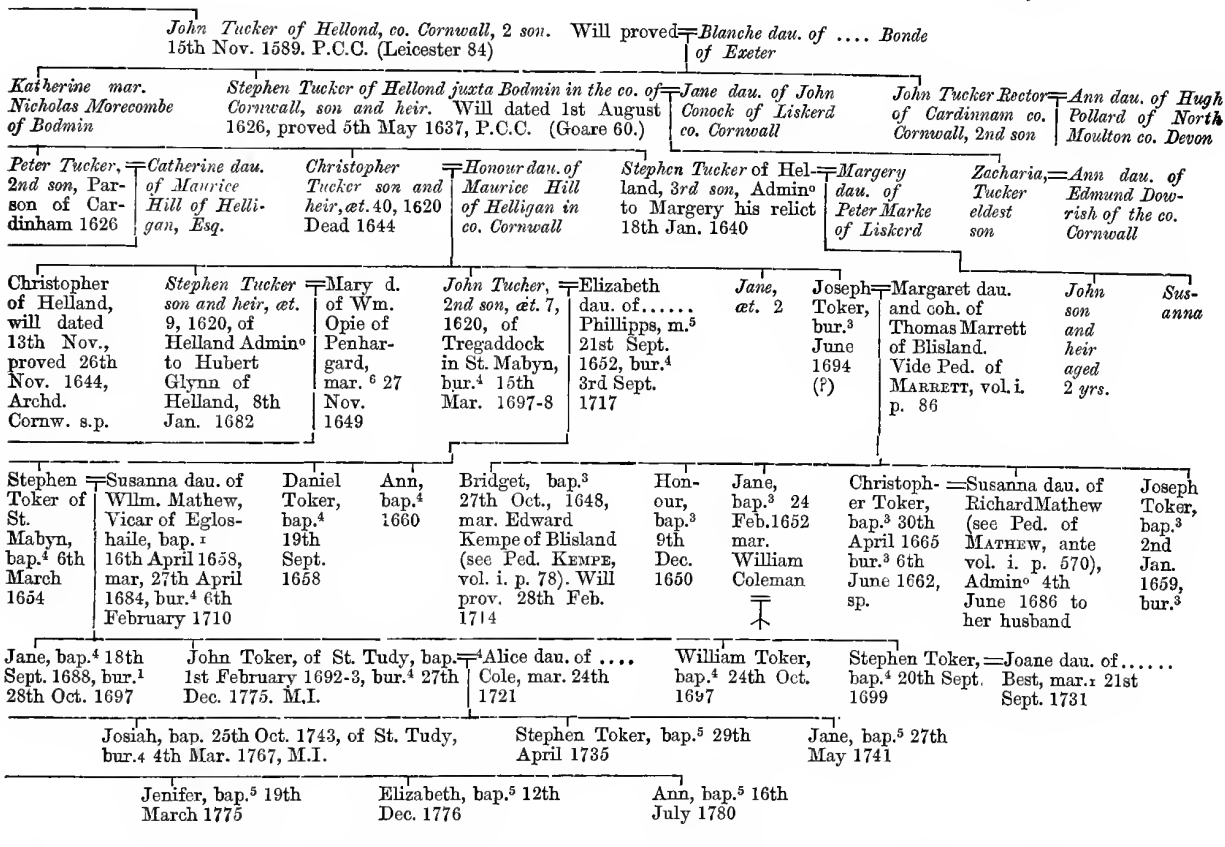 John Tucker of Hellond, co. Cornwall, 2 son. Will proved=Blanche dau. of .... Bonde
15th Nov. 1589. P.C.C. (Leicester 84)
of Exeter
Katherine mar.
Nicholas Morecombe
of Bodmin
Stephen Tucker of Hellond juxta Bodmin in the co. of=Jane dau. of John
Cornwall, son and heir. Will dated 1st August
1626, proved 5th May 1637, P.C.C. (Goare 60.)
Conock of Liskerd
co. Cornwall
John Tucker Rector=Ann dau. of Hugh
of Cardinnam co.
Cornwall, 2nd son
Pollard of North
Moulton co. Devon
Peter Tucker,=Catherine dau.
2nd son, Par-
son of Car-
dinham 1626
of Maurice
Hill of Helli-
gan, Esq.
Christopher
Tucker son and
heir, æt. 40, 1620
Dead 1644
=Honour dau. of
Maurice Hill
of Helligan in
co. Cornwall
Stephen Tucker of Hel-=Margery
land, 3rd son, Admino
to Margery his relict
18th Jan. 1640
dau. of
Peter Marke
of Liskerd
Zacharia,=Ann dau. of
Tucker
eldest
son
Edmund Dow-
rish of the co.
Cornwall
Christopher
of Helland,
will dated
13th Nov.,
proved 26th
Nov. 1644,
Archd.
Cornw. s.p.
Stephen Tucker
son and heir, æt.
9, 1620, of
Helland Admino
to Hubert
Glynn of
Helland, 8th
Jan. 1682
=Mary d.
of Wm.
Opie of
Penhar-
gard,
mar. 6 27
Nov.
1649
John Tucker,
2nd son, æt. 7,
1620, of
Tregaddock
in St. Mabyn,
bur.4 15th
Mar. 1697-8
=Elizabeth
dau. of......
Phillipps, m.5
21st Sept.
1652, bur.4
3rd Sept.
1717
Jane,
æt. 2
Joseph
Toker,
bur.3
June
1694
(?)
=Margaret dau.
and coh. of
Thomas Marrett
of Blisland.
Vide Ped. of
MARRETT, vol. i.
p. 86
John
son
and
heir
aged
2 yrs.
Sus-
anna
Stephen
Toker of
St.
Mabyn,
bap.4 6th
March
1654
=Susanna dau. of
Wllm. Mathew,
Vicar of Eglos-
haile, bap.1
16th April 1658,
mar, 27th April
1684, bur.4 6th
February 1710
Daniel
Toker,
bap.4
19th
Sept.
1658
Ann,
bap.4
1660
Bridget, bap.3
27th Oct., 1648,
mar. Edward
Kempe of Blisland
(see Ped. KEMPE,
vol. i. p. 78). Will
prov. 28th Feb.
1714
Hon-
our,
bap.3
9th
Dec.
1650
Jane,
bap.3 24
Feb.1652
mar.
William
Coleman
Christoph-
er Toker,
bap.3 30th
April 1665
bur.3 6th
June 1662,
sp.
=Susanna dau. of
Richard Mathew
(see Ped. of
MATHEW, ante
vol. i. p. 570),
Admino 4th
June 1686 to
her husband
Joseph
Toker,
bap.3
2nd
Jan.
1659,
bur.3
Jane, bap.4 18th
Sept. 1688, bur.1
28th Oct. 1697
John Toker, of St. Tudy, bap.=4Alice dau. of ....
1st February 1692-3, bur.4 27th
Dec. 1775. M.I.
Cole, mar. 24th
1721
William Toker,
bap.4 24th Oct.
1697
Stephen Toker,=Joane dau. of......
bap.4 20th Sept.
1699
Best, mar.1 21st
Sept. 1731
Josiah, bap. 25th Oct. 1743, of St. Tudy,
bur.4 4th Mar. 1767, M.I.
Stephen Toker, bap.5 29th
April 1735
Jane, bap.5 27th
May 1741
Jenifer, bap.5 19th
March 1775
Elizabeth, bap.5 12th
Dec. 1776
Ann, bap.5 16th
July 1780